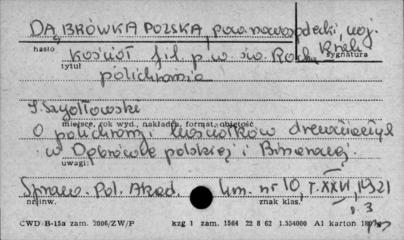 DĄBRÓWKA POLSKA, pow. nowosądecki, woj.
hasło
Kościół fil. p. w. św. Rocha
sygnatura
tytuł
polichromia
S. Szydłowski
miejsce, rok wyd., nakładca, format, objętość
O polichromji kościołków drewnianych
w Dąbrówce polskiej i Binarowej.
uwagi:
Spraw. Pol. Akad. Um. nr 10, T. XXVI, 1921
nr inw.
znak klas.
s. 3
CWD B-15a zam. 2006/ZW/P kzg 1 zam. 1564 22 8 62 1.554000 A1 karton